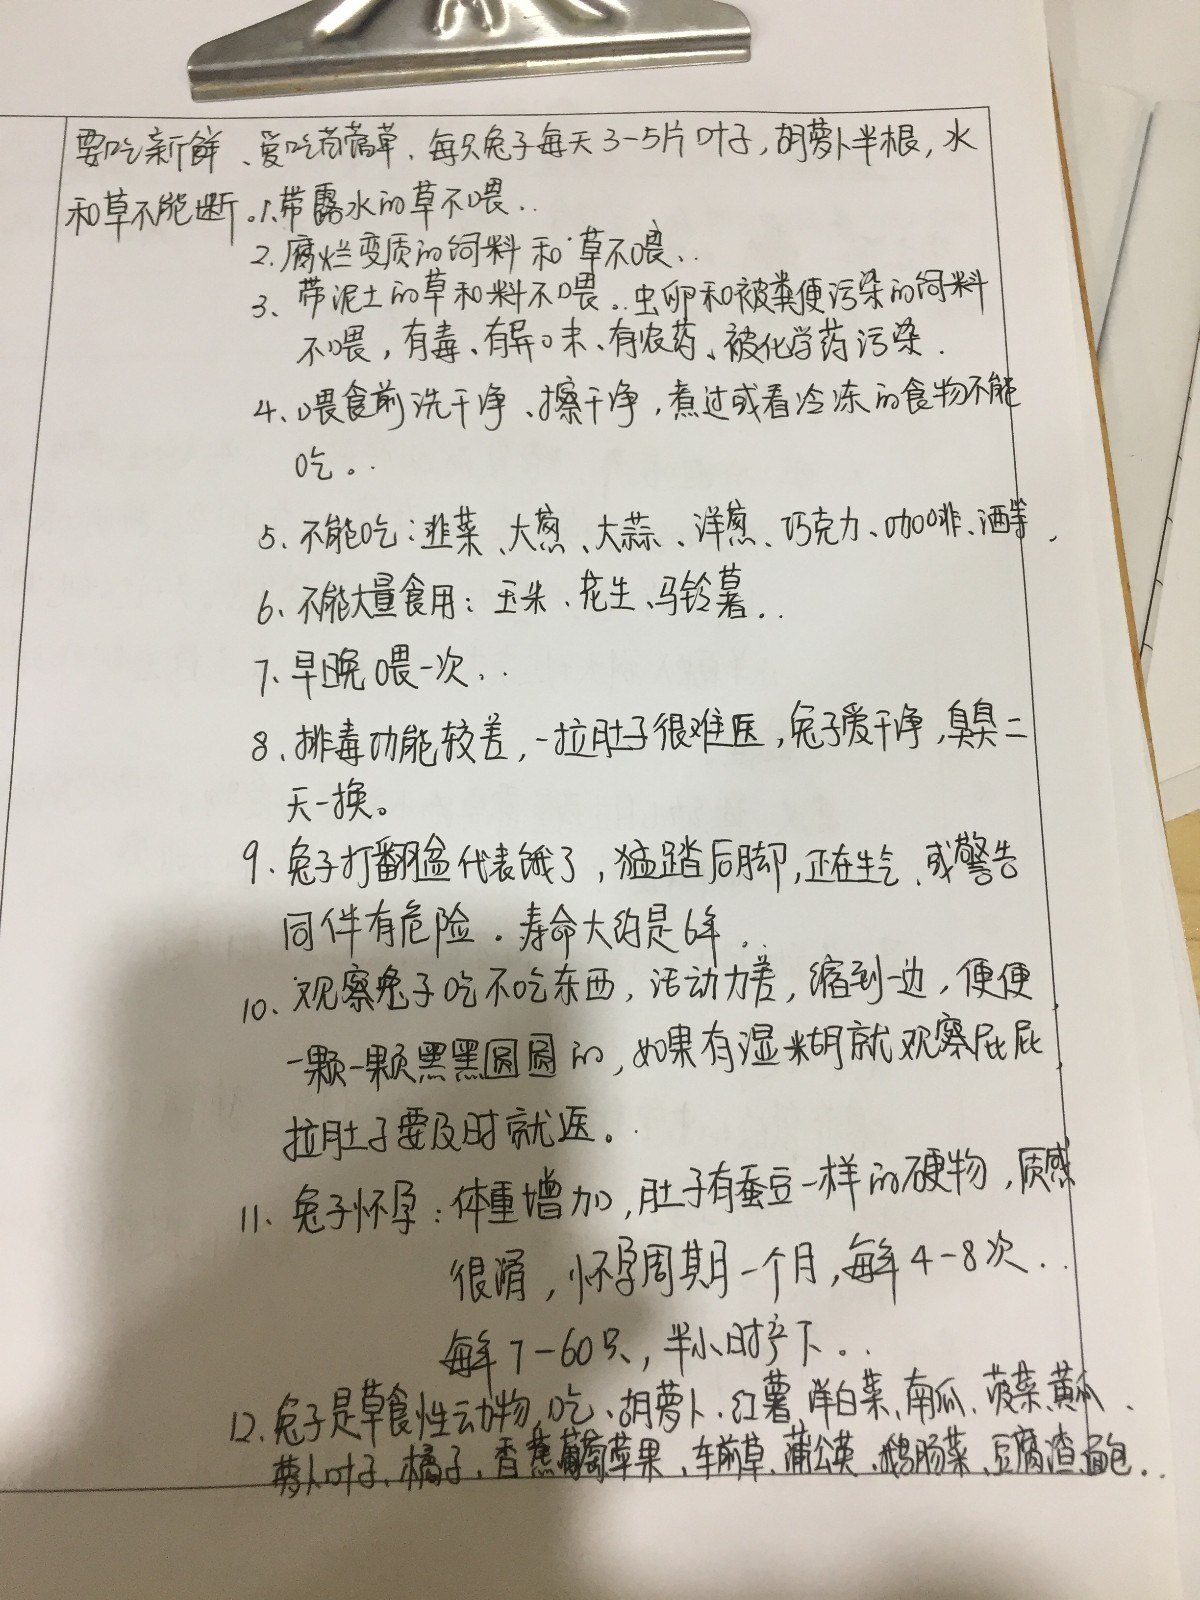 要吃新鲜、爱吃茼蒿草、每只兔子每天3-5片叶子,胡萝卜半根,水
和草不能断。1.带露水的草不喂..
2.腐烂变质的饲料和草不喂..
3、带泥土的草和料不喂..虫卵和被粪便污染的饲料
不喂,有毒、有异味、有农药、被化学药污染.
4、喂食前洗干净、擦干净,煮过或看冷冻的食物不能
吃。..
5、不能吃:韭菜、大葱、大蒜、洋葱、巧克力、咖啡、酒等.
6、不能大量食用:玉米、花生、马铃薯..
7、早晚喂一次..
8、排毒功能较差,一拉肚子很难医,兔子爱干净,臭臭二
天一换。
9、兔子打翻盆代表饿了,猛踏后脚,正在生气、或警告
同伴有危险。寿命大约是6年..
10、观察兔子吃不吃东西,活动力差,缩到一边,便便
一颗一颗黑黑圆圆的,如果有湿糊就观察屁屁,
拉肚子要及时就医。.
11、兔子怀孕:体重增加,肚子有蚕豆一样的硬物,质感
很滑,怀孕周期一个月,每年4-8次..
每年7-60只,半小时产下。.
12、兔子是草食性动物,吃、胡萝卜、红薯、洋白菜、南瓜、菠菜、黄瓜、
萝卜叶子、橘子、香蕉、葡萄、苹果、车前草、蒲公英、鹅肠菜、豆腐渣、面包..